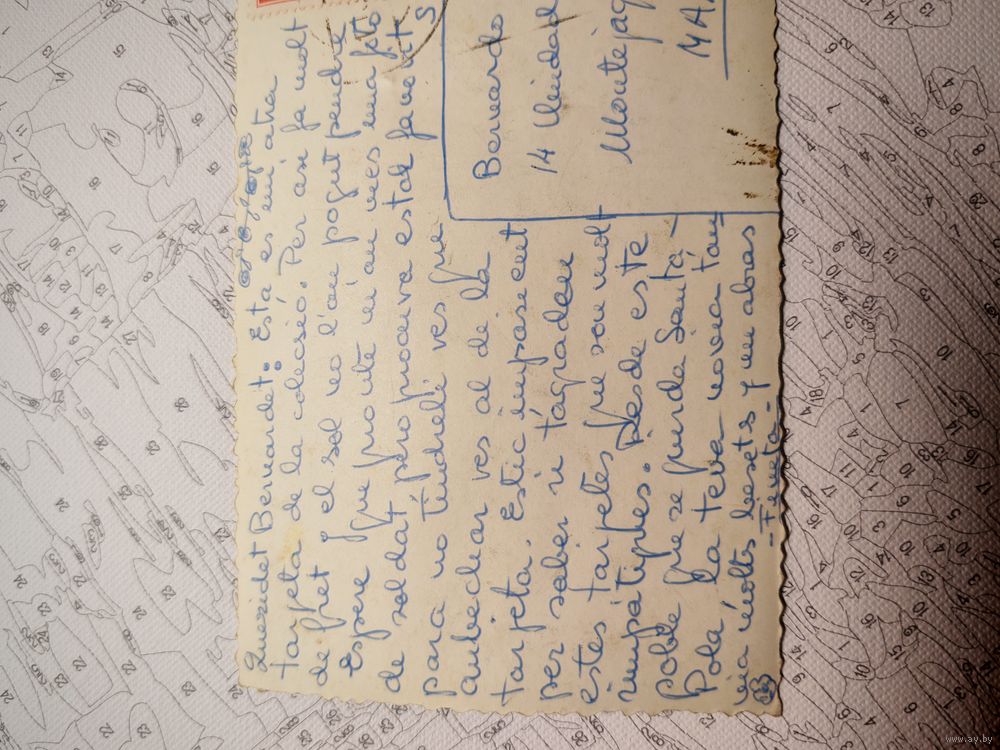 Queridet Bernardet: Esta es mi atra
tarjeta de la colecció. Per asi fa molt
de fret y el sol no l'am pogut pendre
espere que pronte m'anvies una foto
de soldat, pero procura estar favorit
para no Tindreli ves que
ambechar res al de la
tarjeta. Estic impasient
per saber si t'agraden
estes tarjetes que son molt
simpátiques. Desde este
poble que se funda Santa-
Pola la teva novia t'an
via molts besets y un abras
-Fineta-
Bernardo
14 Unidad
Montejaq
MA
S
www.ay.by